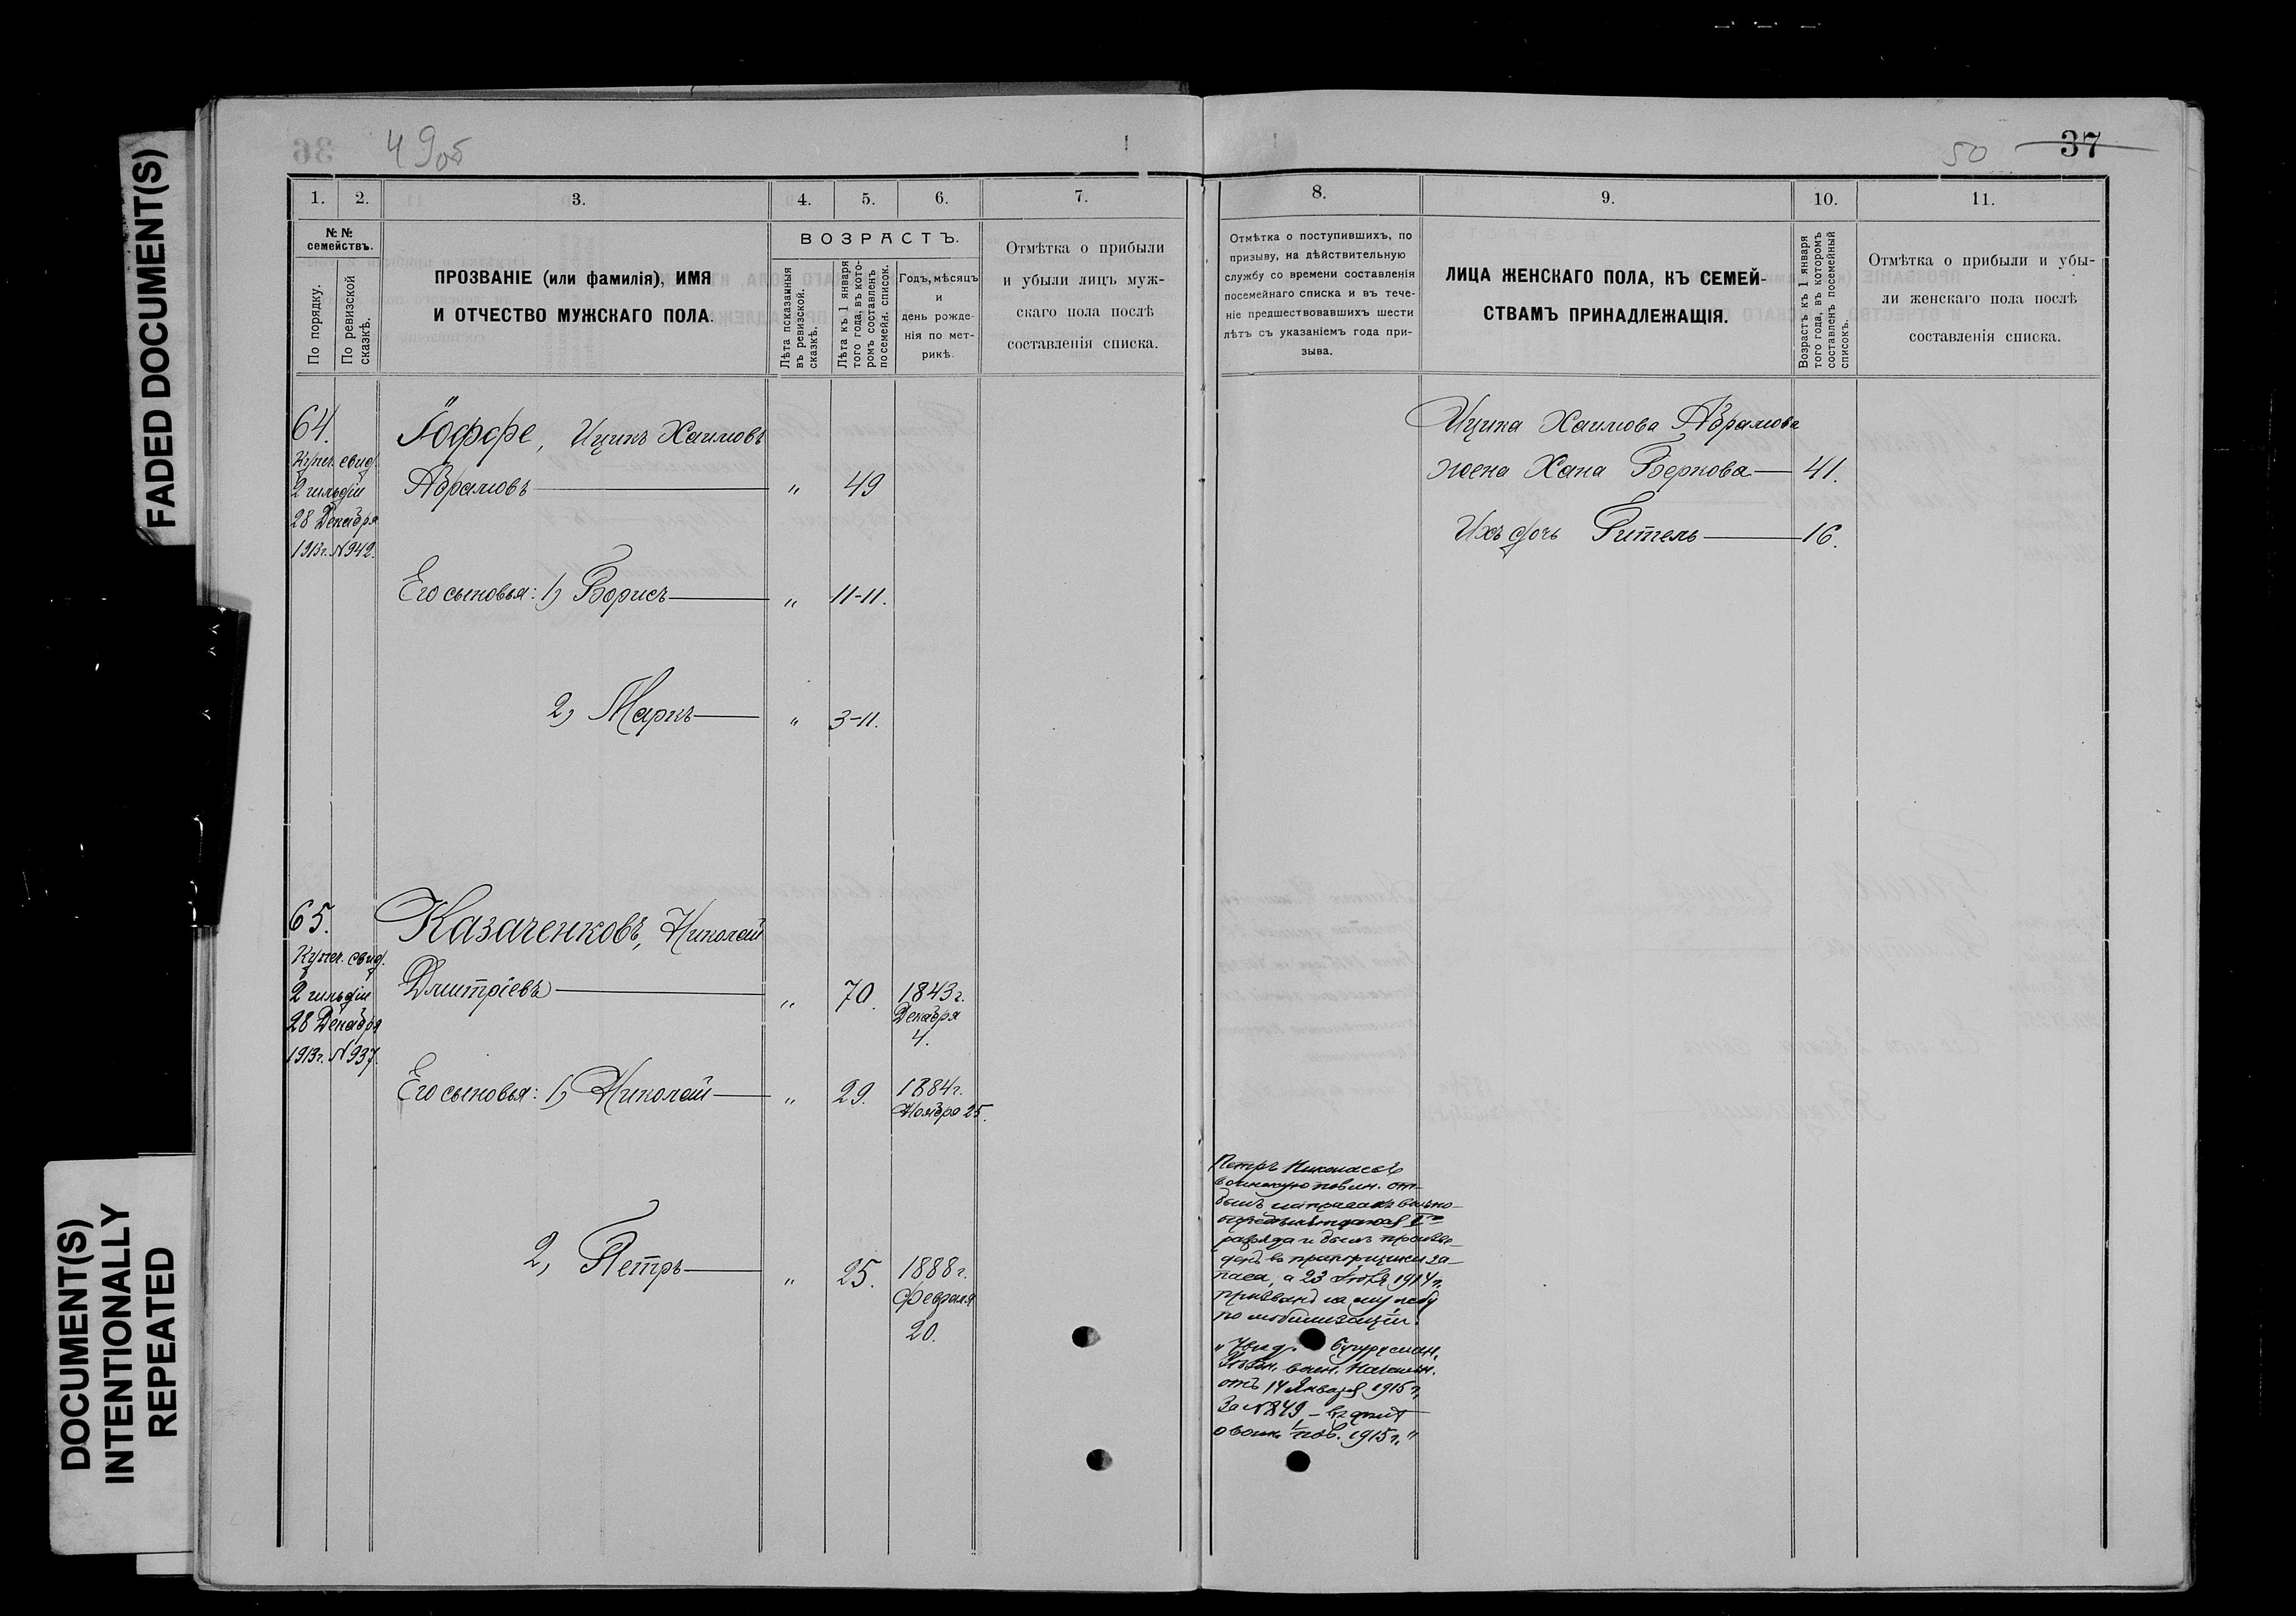 FADED DOCUMENT(S)
DOCUMENT(S)
INTENTIONALLY
REPEATED
36
49об
1. 2. 3. 4. 5. 6. 7.
№ №
семействъ.
По порядку.
По ревизской
сказкѣ.
ПРОЗВАНІЕ (или фамилія), ИМЯ
И ОТЧЕСТВО МУЖСКАГО ПОЛА.
ВОЗРАСТЪ.
Лѣта показанныя
въ ревизской.
сказкѣ.
Лѣта къ 1 января
того года, въ кото-
ромъ составленъ
посемейн. список.
Годъ, мѣсяцъ
и
день рожде-
нія по мет-
рикѣ.
Отмѣтка о прибыли
и убыли лицъ муж-
скаго пола послѣ
составленія списка.
64.
Купеч. свид.
2 гильдіи
28 Декабря
1913г. №942.
Іоффе, Ицикъ Хаимовъ
Абрамовъ „ 49
Его сыновья: 1) Борисъ „ 11-11.
2) Маркъ „ 3-11.
65.
Купеч. свид.
2 гильдіи
28 Декабря
1913г. №937.
Казаченковъ, Николай
Дмитріевъ „ 70. 1843г.
Декабря
4.
Его сыновья: 1) Николай „ 29. 1884г.
Ноября 25.
2) Петръ „ 25. 1888г.
Февраля
20.
50 37
8. 9. 10. 11.
Отмѣтка о поступившихъ, по
призыву, на дѣйствительную
службу со времени составленія
посемейнаго списка и въ тече-
ніе предшествовавшихъ шести
лѣтъ съ указаніемъ года при-
зыва.
ЛИЦА ЖЕНСКАГО ПОЛА, КЪ СЕМЕЙ-
СТВАМЪ ПРИНАДЛЕЖАЩІЯ.
Возрастъ къ 1 января
того года, въ которомъ
составленъ посемейный
списокъ.
Отмѣтка о прибыли и убы-
ли женскаго пола послѣ
составленія списка.
Ицика Хаимова Абрамова
жена Хана Беркова 41.
Ихъ дочь Гитель 16.
Петръ Николаевъ
воинскую повин. от-
былъ на правахъ вольно-
опредѣляющагося 1го
разряда и былъ произве-
денъ въ прапорщики за-
паса, а 23 1914 г.
призванъ на службу
по мобилизаціи.
воен. Начальн.
отъ 14 Января 1915 г.
за №849
о воин. пов. 1915 г."